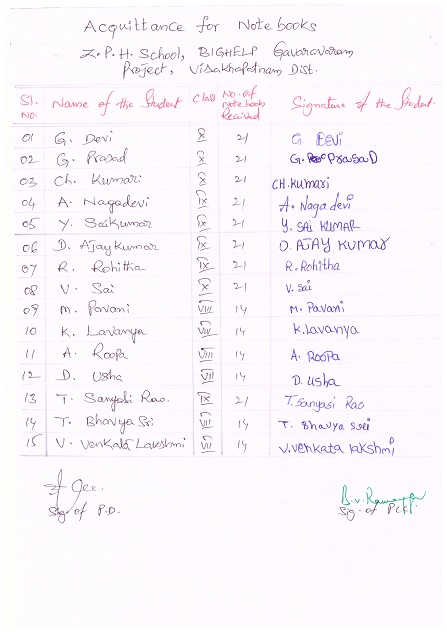 Acquittance for Notebooks
Z.P.H. School, BIGHELP Gavaravaram
Project, Visakhapatnam Dist.
Sl. No. Name of the Student Class No. of notebooks Received Signature of the Student
01 G. Devi X 21 G. DEVI
02 G. Prasad X 21 G. PRASAD
03 Ch. Kumari X 21 CH. Kumari
04 A. Nagadevi IX 21 A. Naga devi
05 Y. Saikumar IX 21 Y. SAI KUMAR
06 D. Ajay Kumar IX 21 D. AJAY KUMAR
07 R. Rohitha IX 21 R. Rohitha
08 V. Sai X 21 V. Sai
09 M. Pavani VIII 14 M. Pavani
10 K. Lavanya VIII 14 K. Lavanya
11 A. Roopa VIII 14 A. Roopa
12 D. Usha VII 14 D. Usha
13 T. Sanyasi Rao. IX 21 T. Sanyasi Rao
14 T. Bhavya Sri VII 14 T. Bhavya Sri
15 V. Venkata Lakshmi VII 14 V. Venkata lakshmi
Sig. of P.D. Sig. of PCF.